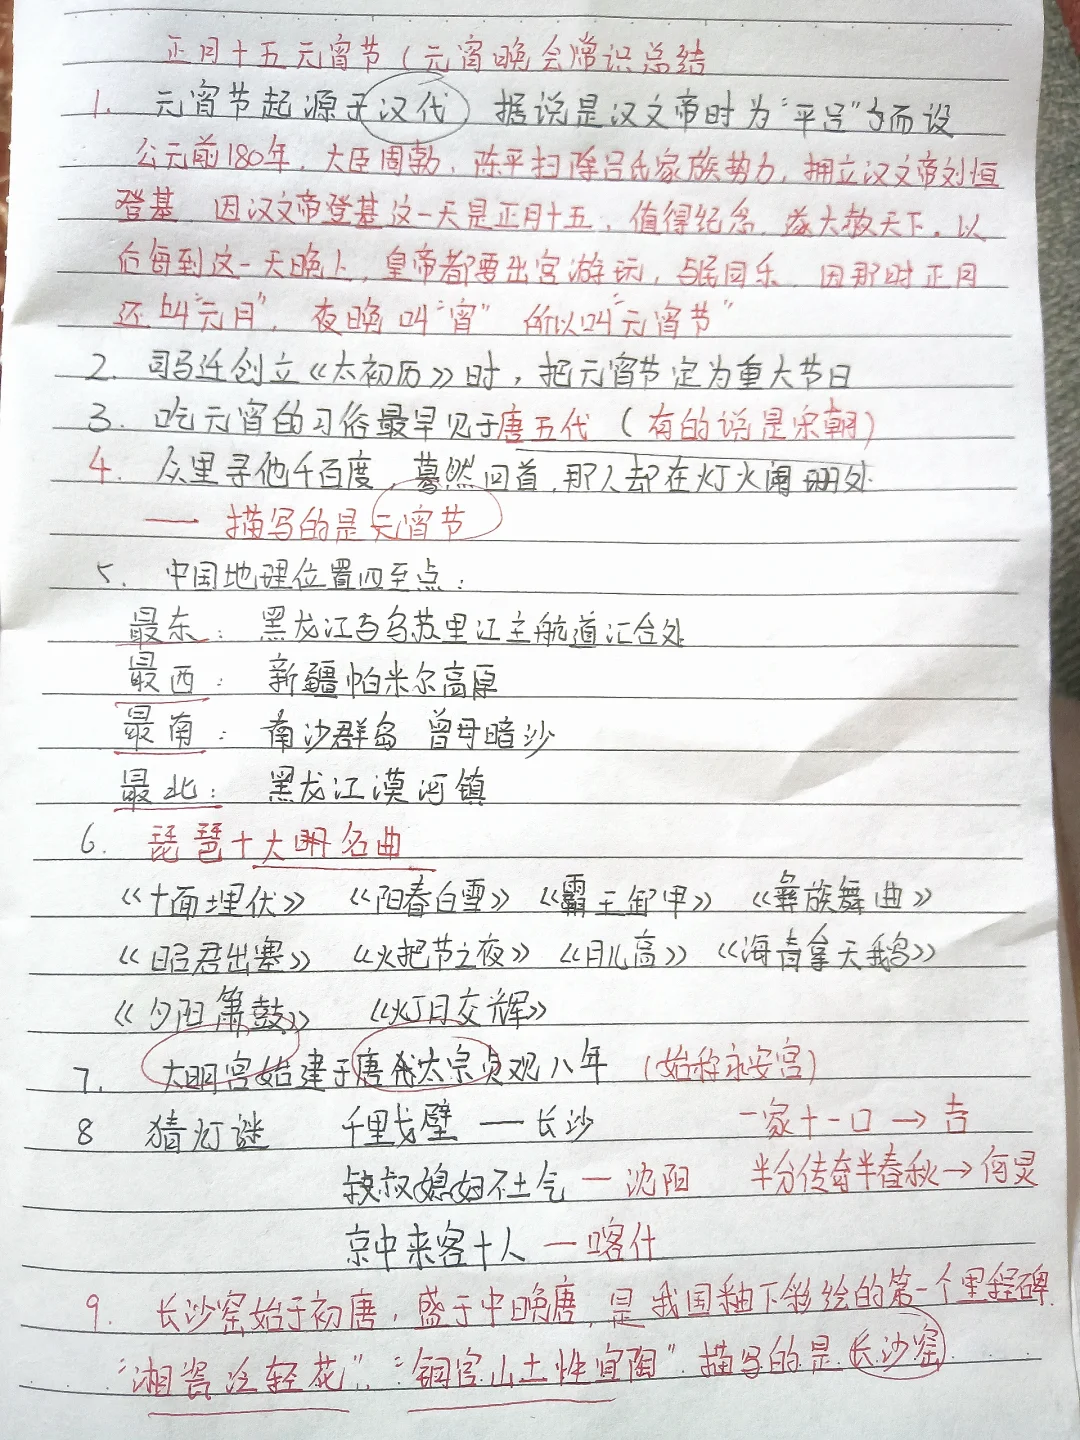 正月十五元宵节（元宵晚会常识总结
1. 元宵节起源于汉代 据说是汉文帝时为"平吕"而设
公元前180年，大臣周勃、陈平扫除吕氏家族势力，拥立汉文帝刘恒
登基 因汉文帝登基这一天是正月十五，值得纪念，遂大赦天下。以
后每到这一天晚上，皇帝都要出宫游玩，与民同乐 因那时正月
还叫"元月"，夜晚叫"宵" 所以叫"元宵节"
2. 司马迁创立《太初历》时，把元宵节定为重大节日
3. 吃元宵的习俗最早见于唐五代（有的说是宋朝）
4. 众里寻他千百度，蓦然回首，那人却在灯火阑珊处
— 描写的是元宵节
5. 中国地理位置四至点：
最东： 黑龙江与乌苏里江主航道汇合处
最西： 新疆帕米尔高原
最南： 南沙群岛 曾母暗沙
最北： 黑龙江漠河镇
6. 琵琶十大名曲
《十面埋伏》 《阳春白雪》《霸王卸甲》 《彝族舞曲》
《昭君出塞》 《火把节之夜》《月儿高》《海青拿天鹅》
《夕阳箫鼓》 《灯月交辉》
7. 大明宫始建于唐代太宗贞观八年 （始称永安宫）
8 猜灯谜 千里戈壁 — 长沙 一家十一口→吉
叔叔媳妇不土气 — 沈阳 半分传奇半春秋→何炅
京中来客十人 — 喀什
9. 长沙窑始于初唐，盛于中晚唐，是我国釉下彩绘的第一个里程碑
"湘瓷泛轻花"，"铜官山土性宜陶"描写的是长沙窑